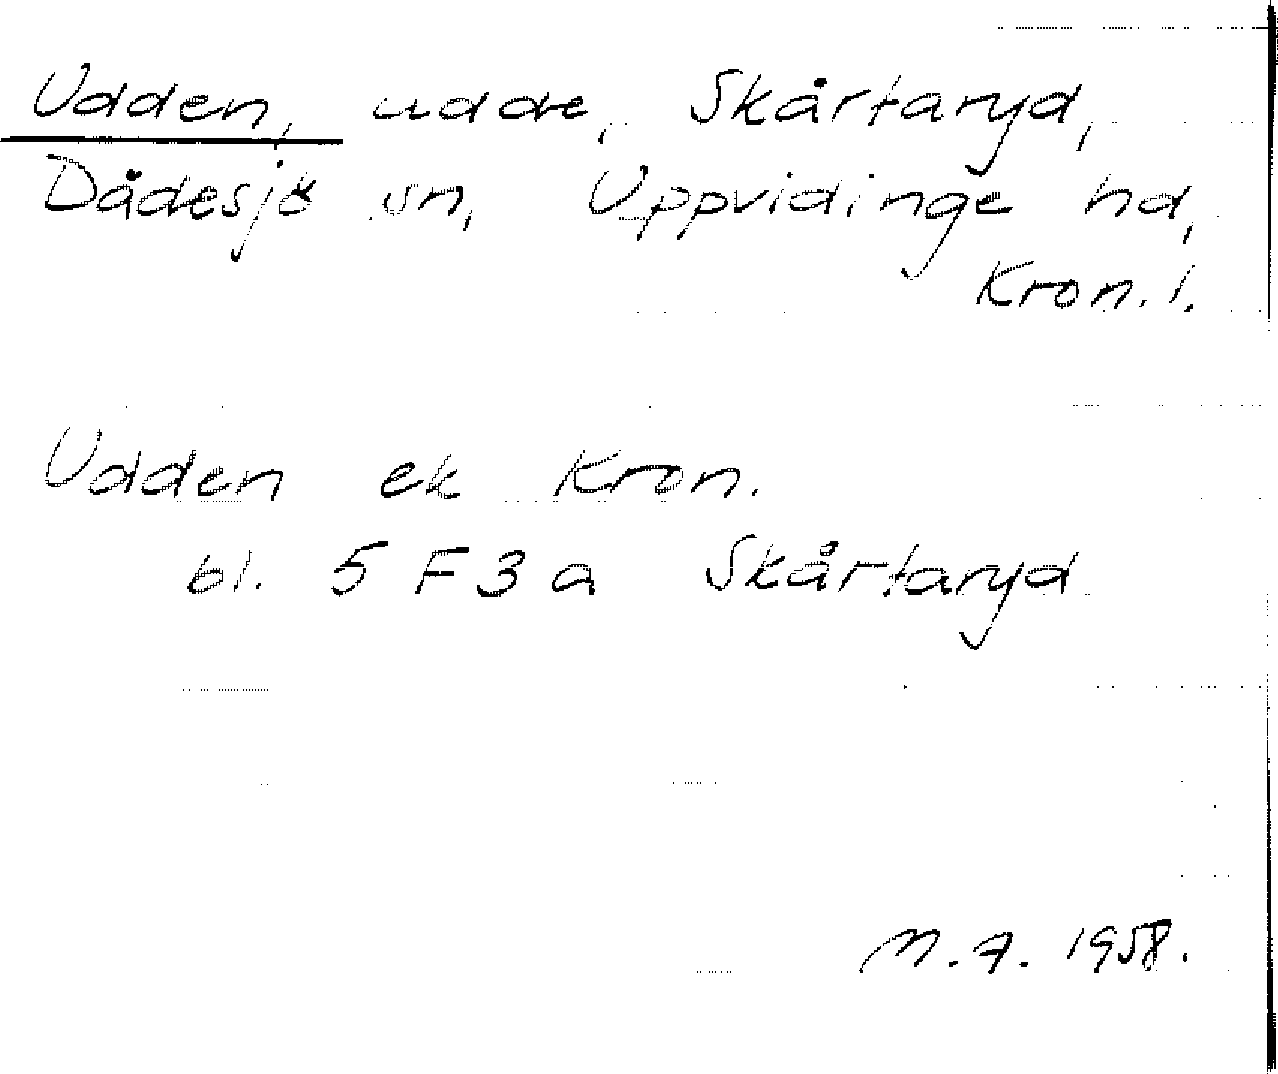 Udden, udde, Skårtaryd,
Dådesjö sn, Uppvidinge hd,
Kron. l.
Udden ek Kron.
bl. 5 F 3 a Skårtaryd
1958.